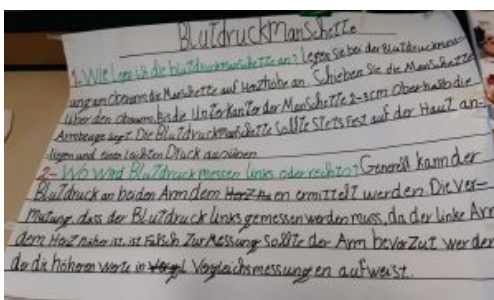 BlutdruckManschette
1. Wie lege ich die blutdruckmanschette an? Legen Sie bei der Blutdruckmess-
ung am Oberarm die Manschette auf Herzhöhe an. Schieben Sie die Manschette
über den Oberarm, bis die Unterkante der Manschette 2-3cm Oberhalb die
Armbeuge liegt. Die Blutdruckmanschette sollte stets fest auf der Haut an-
liegen und einen leichten Druck ausüben.
2- Wo wird Blutdruck messen links oder rechts? Generell kann der
Blutdruck an beiden Arm dem en ermittelt werden. Die Ver-
mutung, dass der Blutdruck links gemessen werden muss, da der linke Arm
dem Herz näher ist, ist Falsch Zur Messung sollte der Arm bevorzut werden
der die höheren werte in Vergleichsmessungen aufweist.